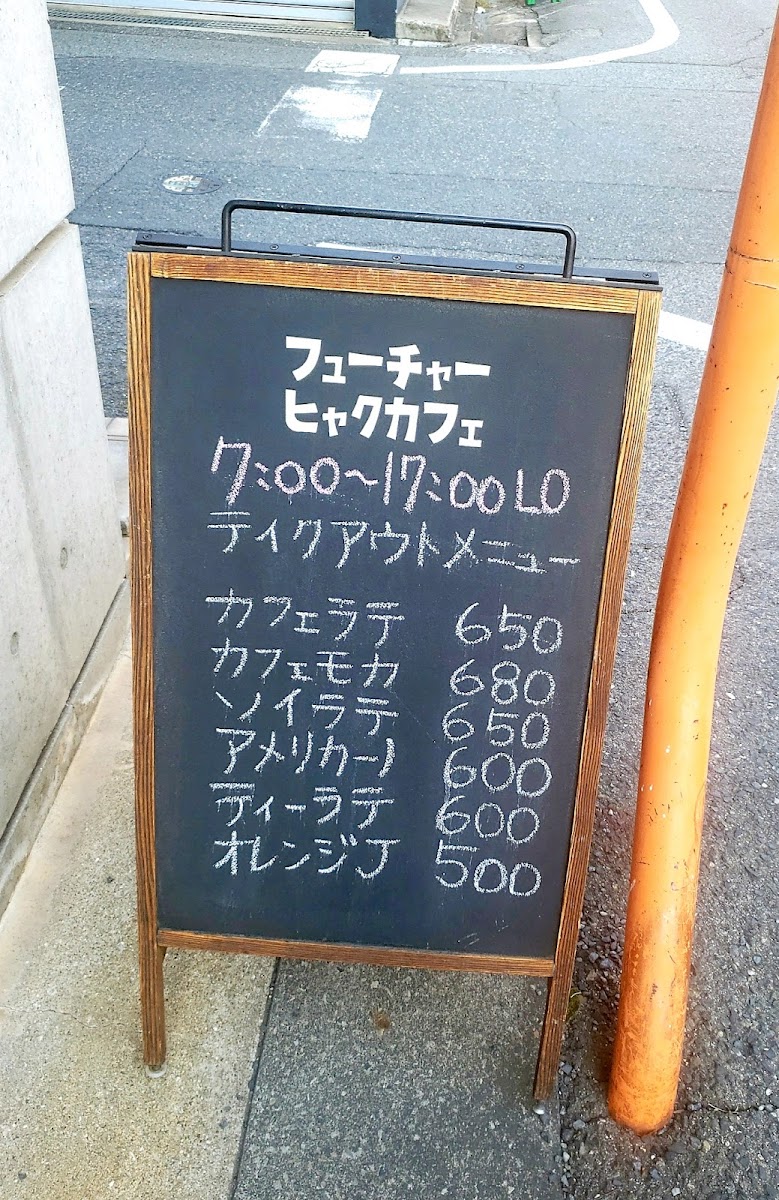 フューチャー
ヒャクカフェ
7:00〜17:00 LO
テイクアウトメニュー
カフェラテ 650
カフェモカ 680
ソイラテ 650
アメリカーノ 600
ティーラテ 600
オレンジJ 500